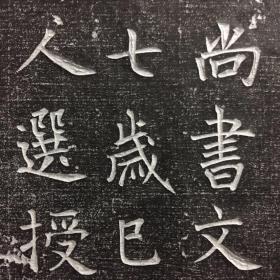 尚書文
七歲已
人選授